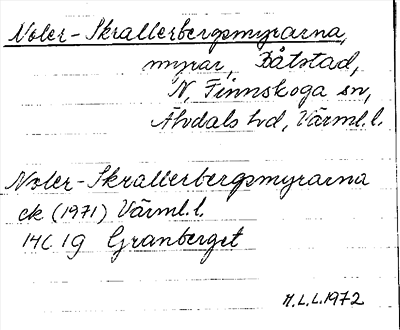 Noler-Skrallerbergsmyrarna,
myrar, Båtstad,
N. Finnskoga sn,
Älvdals hd, Värml. l.
Noler-Skrallerbergsmyrarna
ek (1971) Värml. l.
14C 1g Granberget
M.L.L. 1972